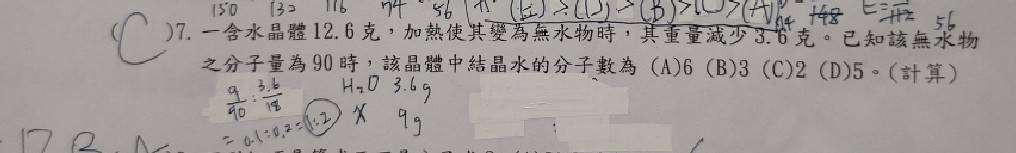 150 132 116 74 56 (E)>(D)>(B)>(C)>(A)
(C)7. 一含水晶體12.6克，加熱使其變為無水物時，其重量減少3.6克。已知該無水物
之分子量為90時，該晶體中結晶水的分子數為 (A)6 (B)3 (C)2 (D)5。(計算)
9/90 : 3.6/18 H₂O 3.6g
= 0.1:0.2 = 1:2 X 9g